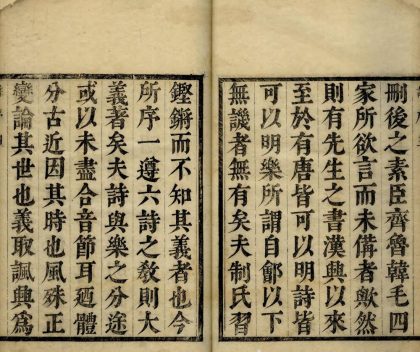 刪後之素臣齊魯韓毛四
家所欲言而未備者歟然
則有先生之書漢興以來
至於有唐皆可以明詩皆
可以明樂所謂自鄶以下
無譏者無有矣夫制氏習
鏗鏘而不知其義者也今
所序一遵六詩之教則大
義著矣夫詩與樂之分途
或以未盡合音節耳廼體
分古近因其時也風殊正
變論其世也義取諷興為